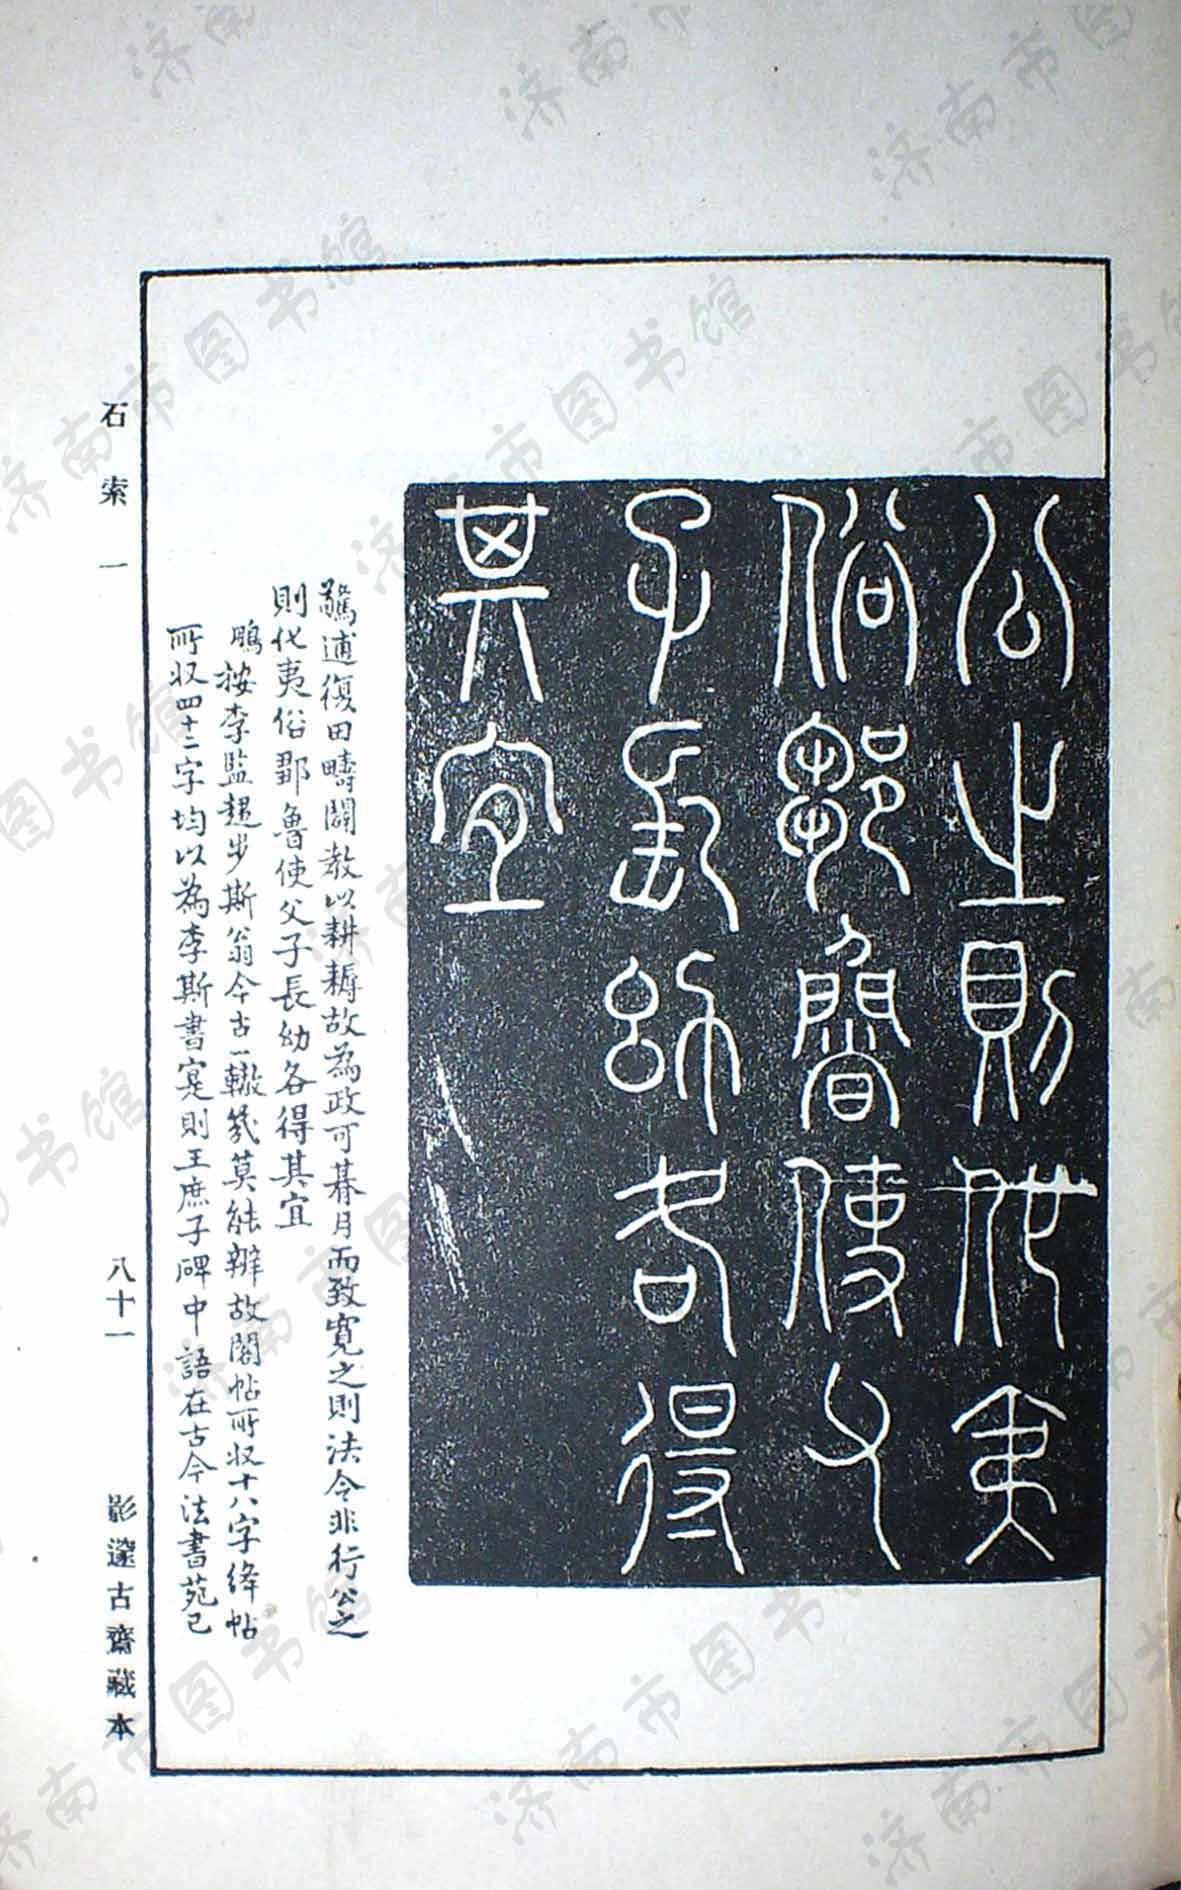 公之則代夷
俗鄒魯使父
子長幼各得
其宜
驁逋復田疇闢教以耕耨故為政可朞月而致寬之則法令非行公之
則代夷俗鄒魯使父子長幼各得其宜
鵬按李監趨步斯翁今古一轍幾莫能辨故閣帖所收十八字絳帖
所收四十二字均以為李斯書寔則王庶子碑中語在古今法書苑已
石索一 八十一 影邃古齋藏本
济南市图书馆